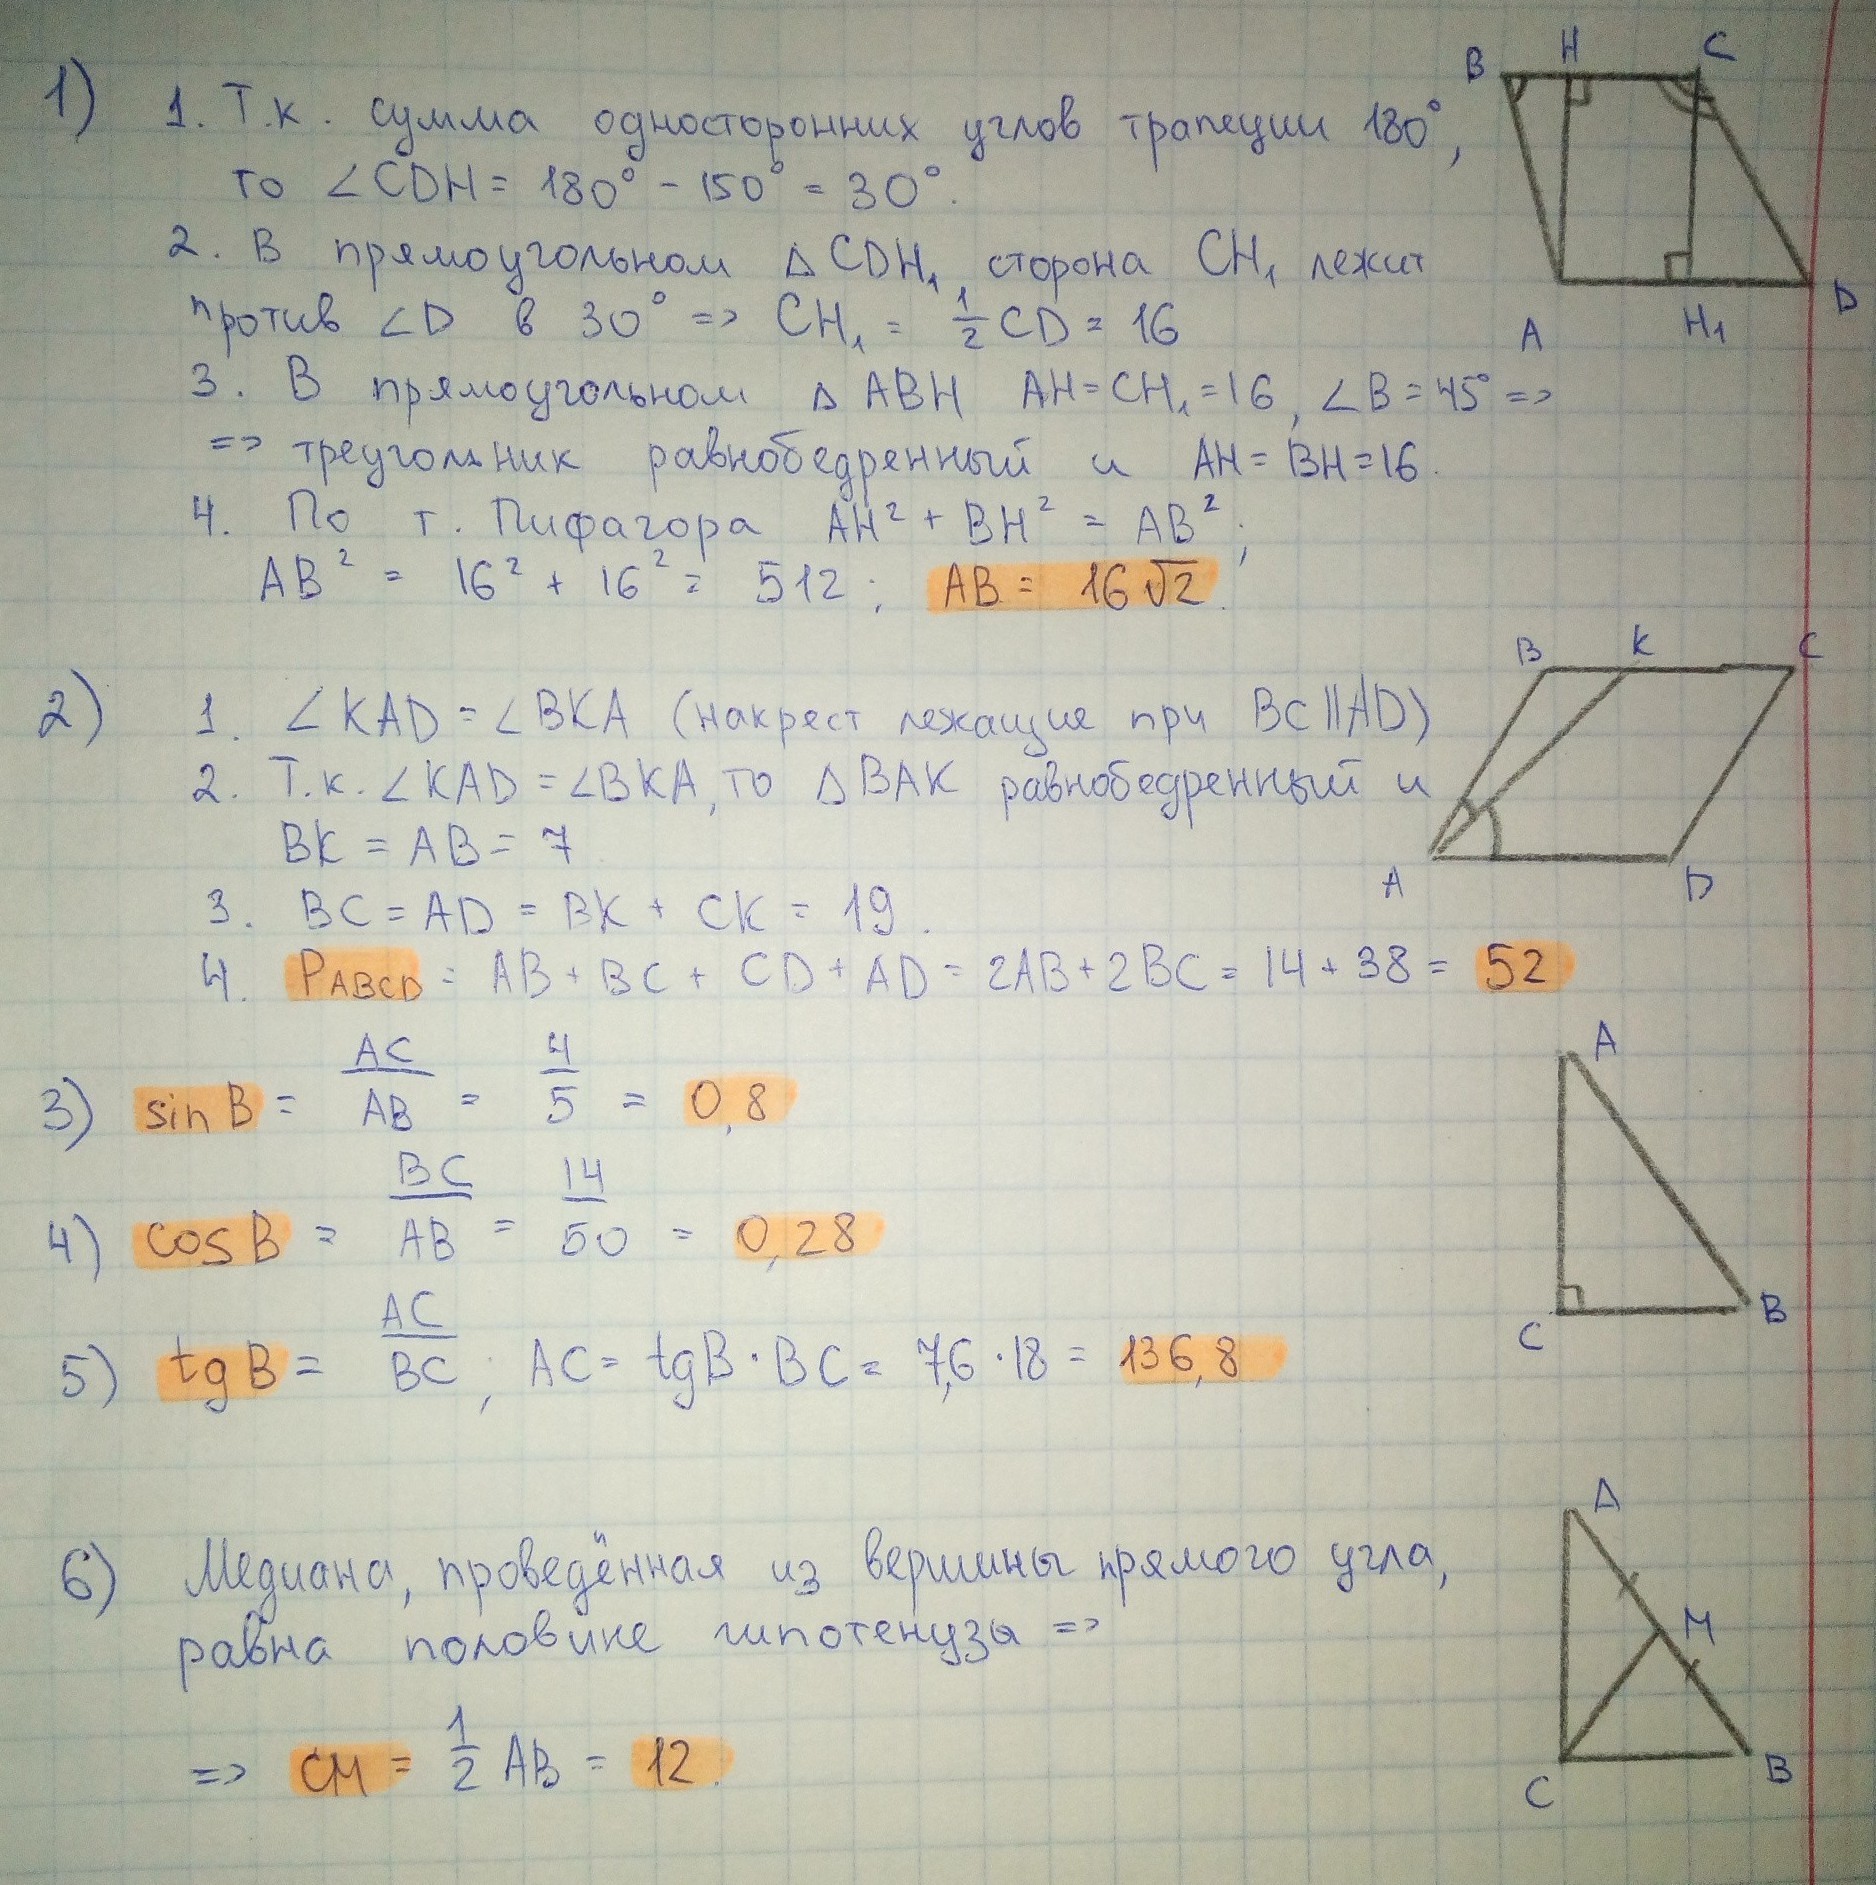 1) 1. Т.к. сумма односторонних углов трапеции 180°,
то ∠CDH = 180° - 150° = 30°.
2. В прямоугольном △CDH₁ сторона CH₁ лежит
против ∠D в 30° => CH₁ = 1/2 CD = 16
3. В прямоугольном △ABH AH = CH₁ = 16, ∠B = 45° =>
=> треугольник равнобедренный и AH = BH = 16.
4. По т. Пифагора AH² + BH² = AB²;
AB² = 16² + 16² = 512; AB = 16√2.
B H C
A H₁ D
2) 1. ∠KAD = ∠BKA (накрест лежащие при BC||AD)
2. Т.к. ∠KAD = ∠BKA, то △BAK равнобедренный и
BK = AB = 7
3. BC = AD = BK + CK = 19.
4. PABCD = AB + BC + CD + AD = 2AB + 2BC = 14 + 38 = 52
B K C
A D
3) sin B = AC/AB = 4/5 = 0,8
4) cos B = BC/AB = 14/50 = 0,28
5) tg B = AC/BC; AC = tgB · BC = 7,6 · 18 = 136,8
A
C B
6) Медиана, проведённая из вершины прямого угла,
равна половине гипотенузы =>
=> CM = 1/2 AB = 12.
A
M
C B